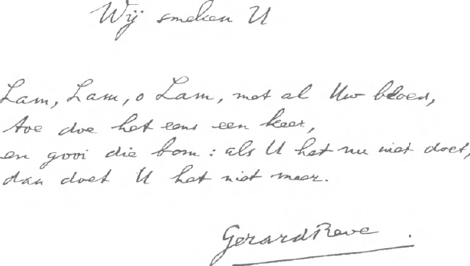 Wij smeken U
Lam, Lam, o Lam, met al Uw bloed,
toe doe het eens een keer,
en gooi die bom: als U het nu niet doet,
dan doet U het niet meer.
Gerard Reve.